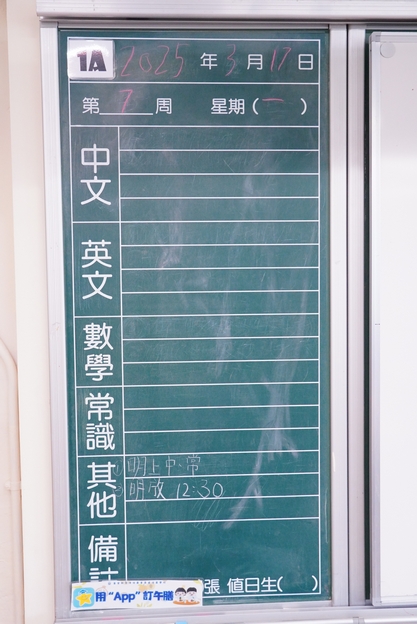 1A 2025 年 3 月 17 日
第 7 周 星期 ( 一 )
中文
英文
數學
常識
其他
① 明上中、常
② 明放 12:30
備註
張 值日生( )
用 "App" 訂午膳